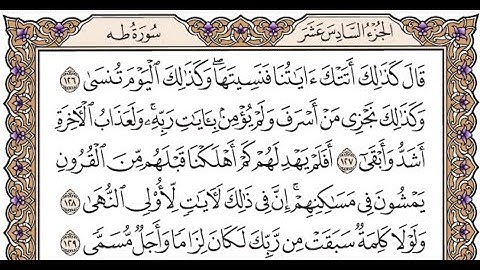 الجزء السادس عشر
سورة طه
قَالَ كَذَٰلِكَ أَتَتْكَ ءَايَٰتُنَا فَنَسِيتَهَا ۖ وَكَذَٰلِكَ ٱلْيَوْمَ تُنسَىٰ ١٢٦
وَكَذَٰلِكَ نَجْزِى مَنْ أَسْرَفَ وَلَمْ يُؤْمِنۢ بِـَٔايَٰتِ رَبِّهِۦ ۚ وَلَعَذَابُ ٱلْءَاخِرَةِ
أَشَدُّ وَأَبْقَىٰٓ ١٢٧ أَفَلَمْ يَهْدِ لَهُمْ كَمْ أَهْلَكْنَا قَبْلَهُم مِّنَ ٱلْقُرُونِ
يَمْشُونَ فِى مَسَٰكِنِهِمْ ۗ إِنَّ فِى ذَٰلِكَ لَءَايَٰتٍ لِّأُو۟لِى ٱلنُّهَىٰ ١٢٨
وَلَوْلَا كَلِمَةٌ سَبَقَتْ مِن رَّبِّكَ لَكَانَ لِزَامًا وَأَجَلٌ مُّسَمًّى ١٢٩